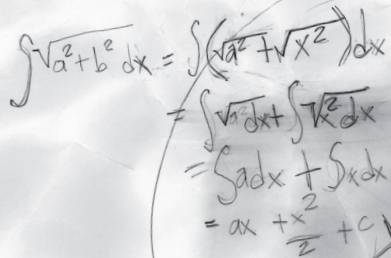 ∫√(a² + b²) dx = ∫(√a² + √x²) dx
= ∫√a² dx + ∫√x² dx
= ∫a dx + ∫x dx
= ax + x²/2 + c